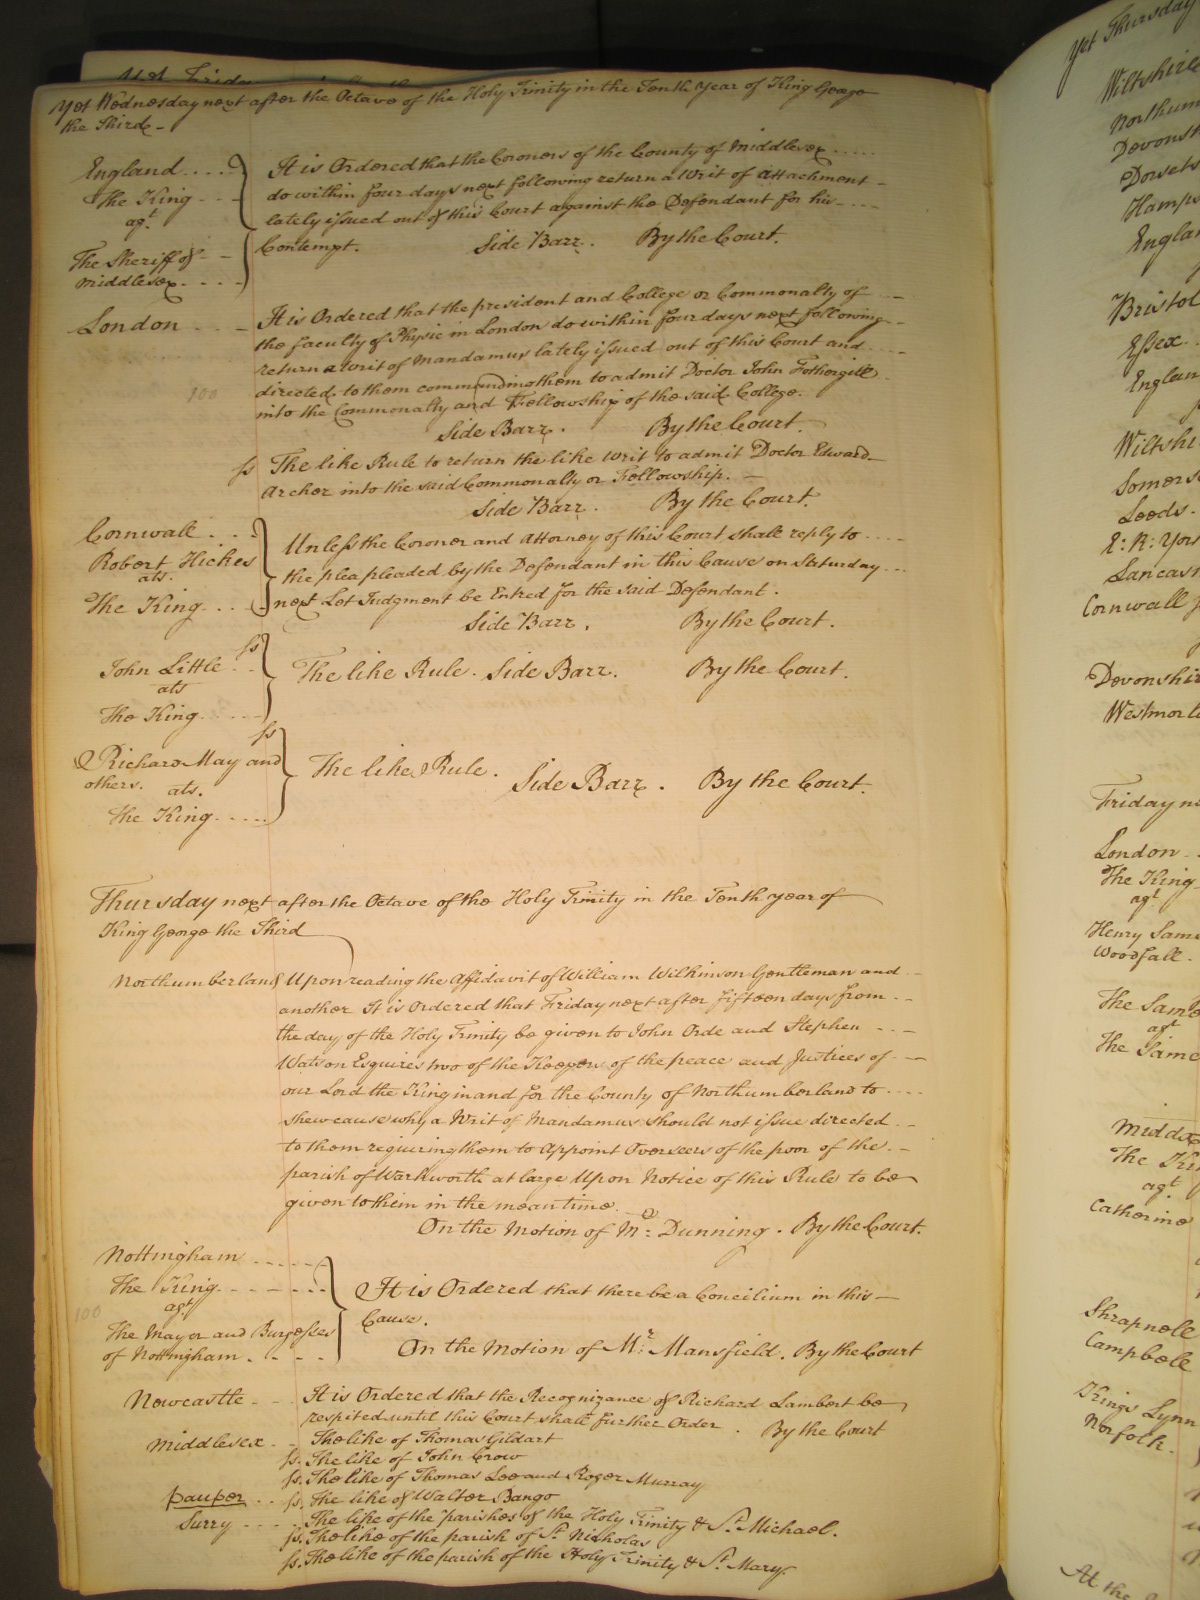 Yet Wednesday next after the Octave of the Holy Trinity in the Tenth Year of King George
the Third
England
The King
agt.
The Sheriff of
Middlesex
It is Ordered that the Coroners of the County of Middlesex
do within four days next following return a Writ of Attachment
lately issued out of this Court against the Defendant for his
Contempt. Side Barr. By the Court.
London
It is Ordered that the president and College or Commonalty of
the faculty of Physic in London do within four days next following
return a Writ of Mandamus lately issued out of this Court and
directed to them commanding them to admit Doctor John Fothergill
into the Commonalty and Fellowship of the said College.
Side Barr. By the Court.
100
ss The like Rule to return the like Writ to admit Doctor Edward
Archer into the said Commonalty or Fellowship.
Side Barr. By the Court.
Cornwall
Robert Hickes
ats.
The King
Unless the Coroner and Attorney of this Court shall reply to
the plea pleaded by the Defendant in this Cause on Saturday
next Let Judgment be Entred for the said Defendant.
Side Barr. By the Court.
ss
John Little
ats
The King
The like Rule. Side Barr. By the Court.
ss
Richard May and
others. ats.
The King
The like Rule. Side Barr. By the Court.
Thursday next after the Octave of the Holy Trinity in the Tenth year of
King George the Third
Northumberland Upon reading the Affidavit of William Wilkinson Gentleman and
another It is Ordered that Friday next after fifteen days from
the day of the Holy Trinity be given to John Orde and Stephen
Watson Esquires two of the Keepers of the peace and Justices of
our Lord the King in and for the County of Northumberland to
shew cause why a Writ of Mandamus should not issue directed
to them requiring them to Appoint Overseers of the poor of the
parish of Warkworth at large Upon Notice of this Rule to be
given to them in the mean time.
On the Motion of Mr. Dunning. By the Court.
Nottingham
The King
agt
The Mayor and Burgesses
of Nottingham
100
It is Ordered that there be a Concilium in this
Cause.
On the Motion of Mr. Mansfield. By the Court
Newcastle It is Ordered that the Recognizance of Richard Lambert be
respited until this Court shall further Order. By the Court
Middlesex The like of Thomas Gildart
ss. The like of John Crow
ss. The like of Thomas Lee and Roger Murray
pauper ss. The like of Walter Bango
Surry The like of the parishes of the Holy Trinity & St. Michael.
ss. The like of the parish of St. Nicholas
ss. The like of the parish of the Holy Trinity & St. Mary.
Yet Thursday
Wiltshire
Northum
Devonsh
Dorsets
Hamps
Englan
Bristol
Essex
Englan
Wiltshi
Somers
Leeds.
E: R: Yor
Lancas
Cornwall
Devonshi
Westmorl
Friday n
London
The King
agt
Henry Sam
Woodfall.
The Same
agt
The Same
Middx
The Ki
agt.
Catherine
Shrapnell
Campbell
Kings Lynn
Norfolk.
At the